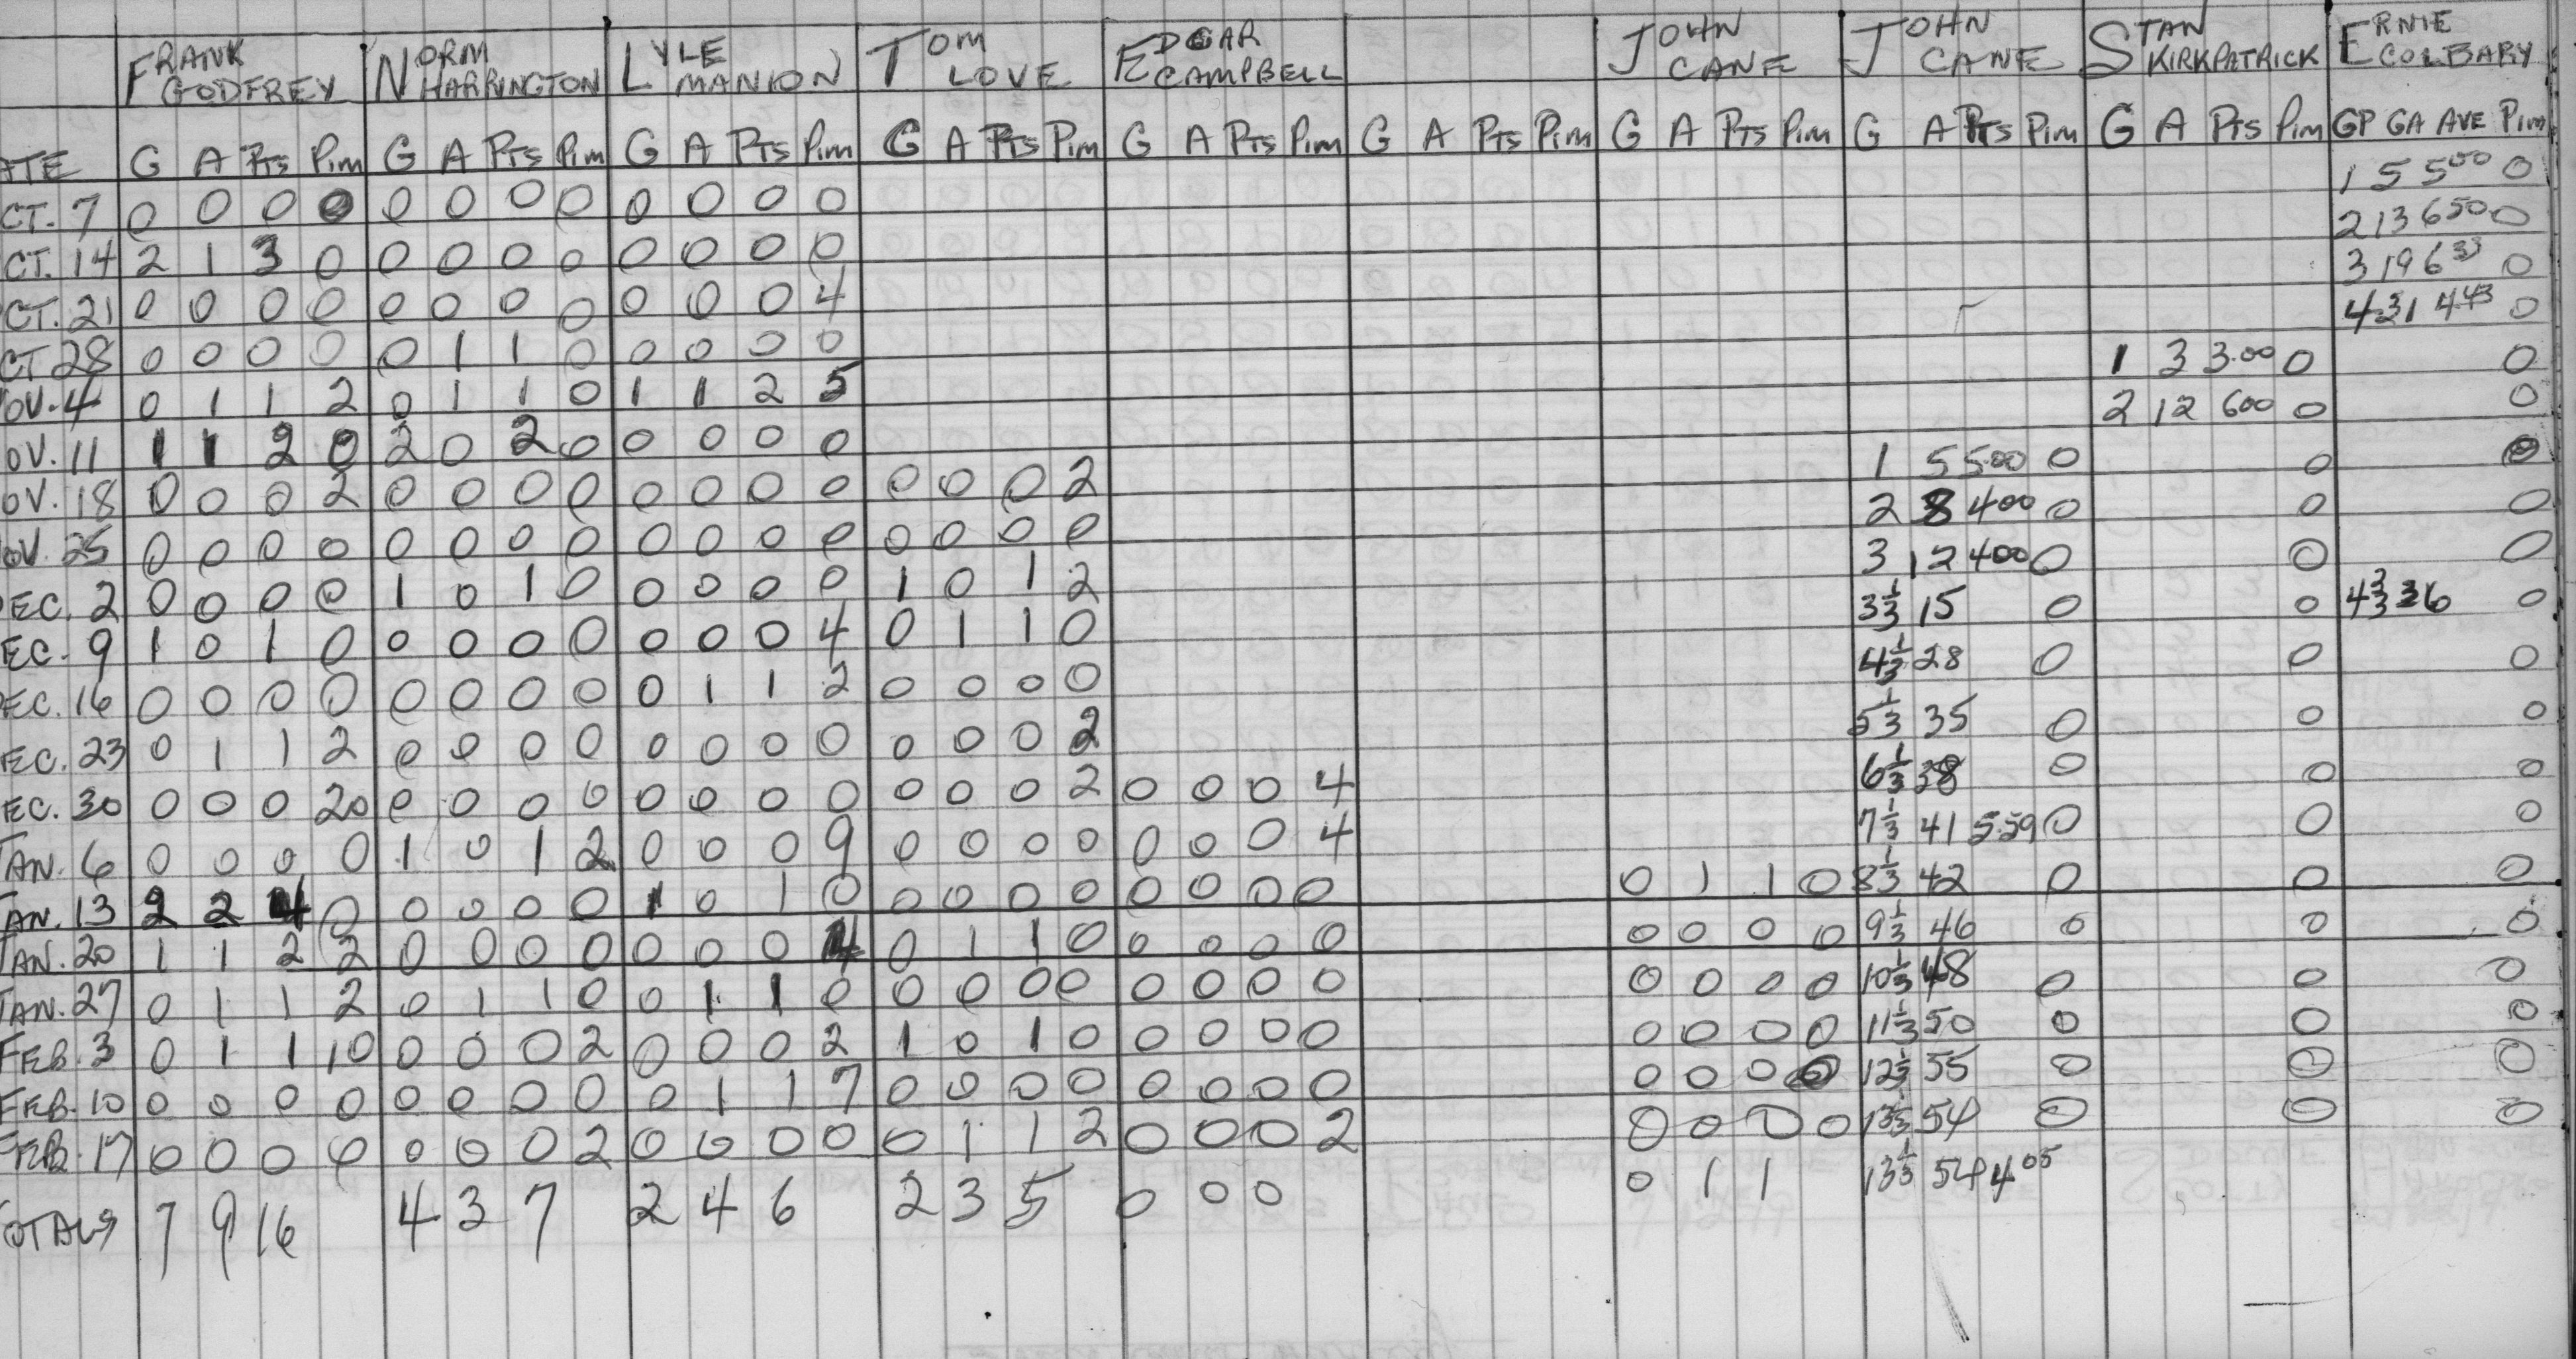 FRANK GODFREY NORM HARRINGTON LYLE MANION TOM LOVE EDGAR CAMPBELL JOHN CANE JOHN CANE STAN KIRKPATRICK ERNIE COLBARY
ATE G A PTS Pim G A PTS Pim G A PTS Pim G A PTS Pim G A PTS Pim G A PTS Pim G A PTS Pim G A PTS Pim G A PTS Pim GP GA AVE Pim
CT. 7 0 0 0 0 0 0 0 0 0 0 0 0 1 5 5 00 0
CT. 14 2 1 3 0 0 0 0 0 0 0 0 0 2 13 6 50 0
CT. 21 0 0 0 0 0 0 0 0 0 0 0 4 3 19 6 33 0
CT 28 0 0 0 0 0 1 1 0 0 0 0 0 4 31 4 43 0
OV. 4 0 1 1 2 0 1 1 0 1 1 2 5 1 3 3.00 0 0
OV. 11 1 1 2 0 2 0 2 0 0 0 0 0 2 12 6 00 0 0
OV. 18 0 0 0 2 0 0 0 0 0 0 0 0 0 0 0 2 1 5 5.00 0 0 0
OV. 25 0 0 0 0 0 0 0 0 0 0 0 0 0 0 0 0 2 8 4 00 0 0 0
EC. 2 0 0 0 0 1 0 1 0 0 0 0 0 1 0 1 2 3 12 4 00 0 0 0
EC. 9 1 0 1 0 0 0 0 0 0 0 0 4 0 1 1 0 3 1/3 15 0 0 4 2/3 36 0
EC. 16 0 0 0 0 0 0 0 0 0 1 1 2 0 0 0 0 4 1/3 28 0 0 0
EC. 23 0 1 1 2 0 0 0 0 0 0 0 0 0 0 0 2 5 1/3 35 0 0 0
EC. 30 0 0 0 20 0 0 0 0 0 0 0 0 0 0 0 2 0 0 0 4 6 1/3 38 0 0 0
AN. 6 0 0 0 0 1 0 1 2 0 0 0 9 0 0 0 0 0 0 0 4 7 1/3 41 5.59 0 0 0
AN. 13 2 2 4 0 0 0 0 0 1 0 1 0 0 0 0 0 0 0 0 0 0 1 1 0 8 1/3 42 0 0 0
AN. 20 1 1 2 2 0 0 0 0 0 0 0 4 0 1 1 0 0 0 0 0 0 0 0 0 9 1/3 46 0 0 0
AN. 27 0 1 1 2 0 1 1 0 0 1 1 0 0 0 0 0 0 0 0 0 0 0 0 0 10 1/3 48 0 0 0
FEB. 3 0 1 1 10 0 0 0 2 0 0 0 2 1 0 1 0 0 0 0 0 0 0 0 0 11 1/3 50 0 0 0
FEB. 10 0 0 0 0 0 0 0 0 0 1 1 7 0 0 0 0 0 0 0 0 0 0 0 0 12 1/3 55 0 0 0
FEB. 17 0 0 0 0 0 0 0 2 0 0 0 0 0 1 1 2 0 0 0 2 0 0 0 0 13 1/3 54 0 0 0
OTALS 7 9 16 4 3 7 2 4 6 2 3 5 0 0 0 0 1 1 13 1/3 54 4 05